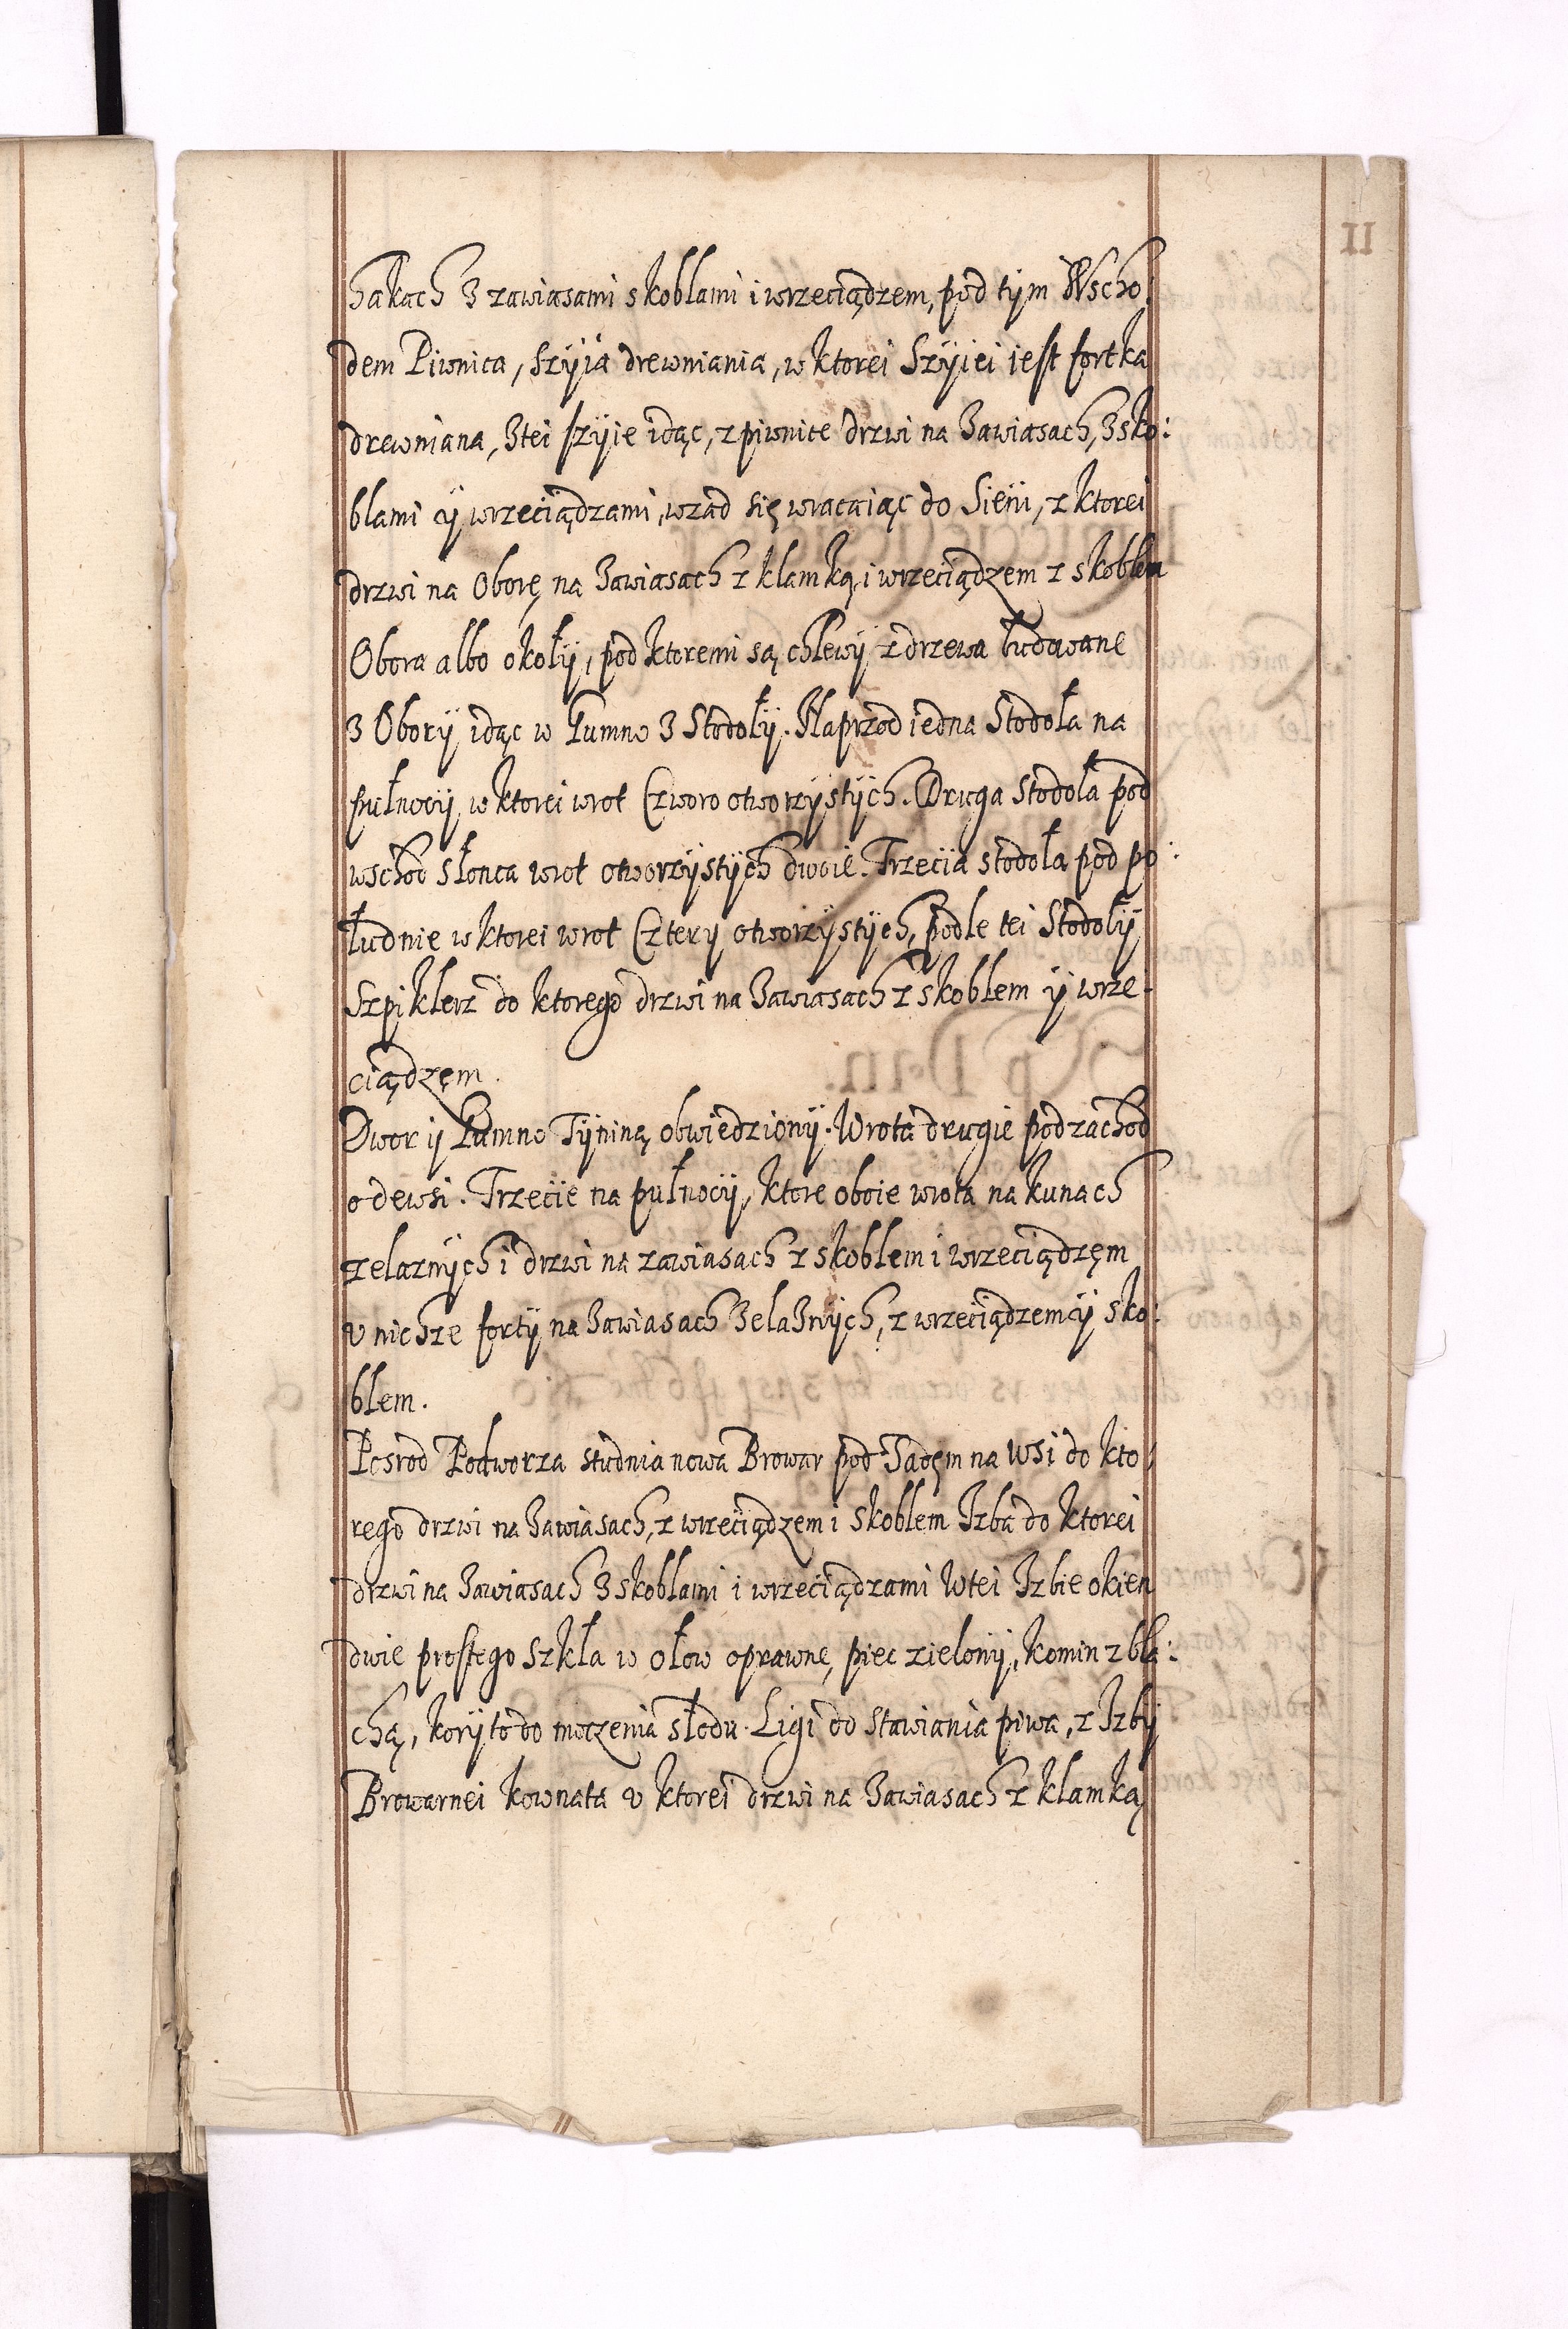 hakach z zawiasami skoblami i wrzeciądzem, pod tym Wscho:
dem Piwnica, szyia drewniania, w ktorei Szyiei iest fortka
drewniana, z tei szyie idąc, z piwnice drzwi na zawiasach, z sko:
blami y wrzeciądzami, wzad się wracaiąc do Sieni, z ktorei
drzwi na Oborę na zawiasach z klamką, i wrzeciądzem z skoblem
Obora albo okoły, pod ktoremi są chlewy z drzewa budowane
z Obory idąc w Gumno 3 Stodoły. Naprzod iedna Stodoła na
pułnocy w ktorei wrot Czworo otworzystych. Druga Stodoła pod
wschod słonca wrot otworzystych dwoie. Trzecia stodoła pod po:
łudnie w ktorei wrot Cztery otworzystych, podle tei Stodoły
Szpiklerz do ktorego drzwi na zawiasach z skoblem y wrze:
ciądzęm.
Dwor y Gumno Tyniną obwiedziony. Wrota drugie pod zachod
od ewsi. Trzecie na pułnocy, ktore oboie wrota na kunach
zelaznych i drzwi na zawiasach z skoblem i wrzeciądzęm
v nichze forty na zawiasach zelaznych, z wrzeciądzem y sko:
blem.
Posrod Podworza studnia nowa Browar pod Sadęm na wsi do kto:
rego drzwi na zawiasach, z wrzeciądzem i skoblem Izba do ktorei
drzwi na zawiasach z skoblami i wrzeciądzami w tei Izbie okien
dwie prostego szkła w ołow oprawne, piec zielony, komin z bla:
chą, koryto do moczenia słodu. Ligi do stawiania piwa, z Izby
Browarnei kownata v ktorei drzwi na zawiasach z klamką